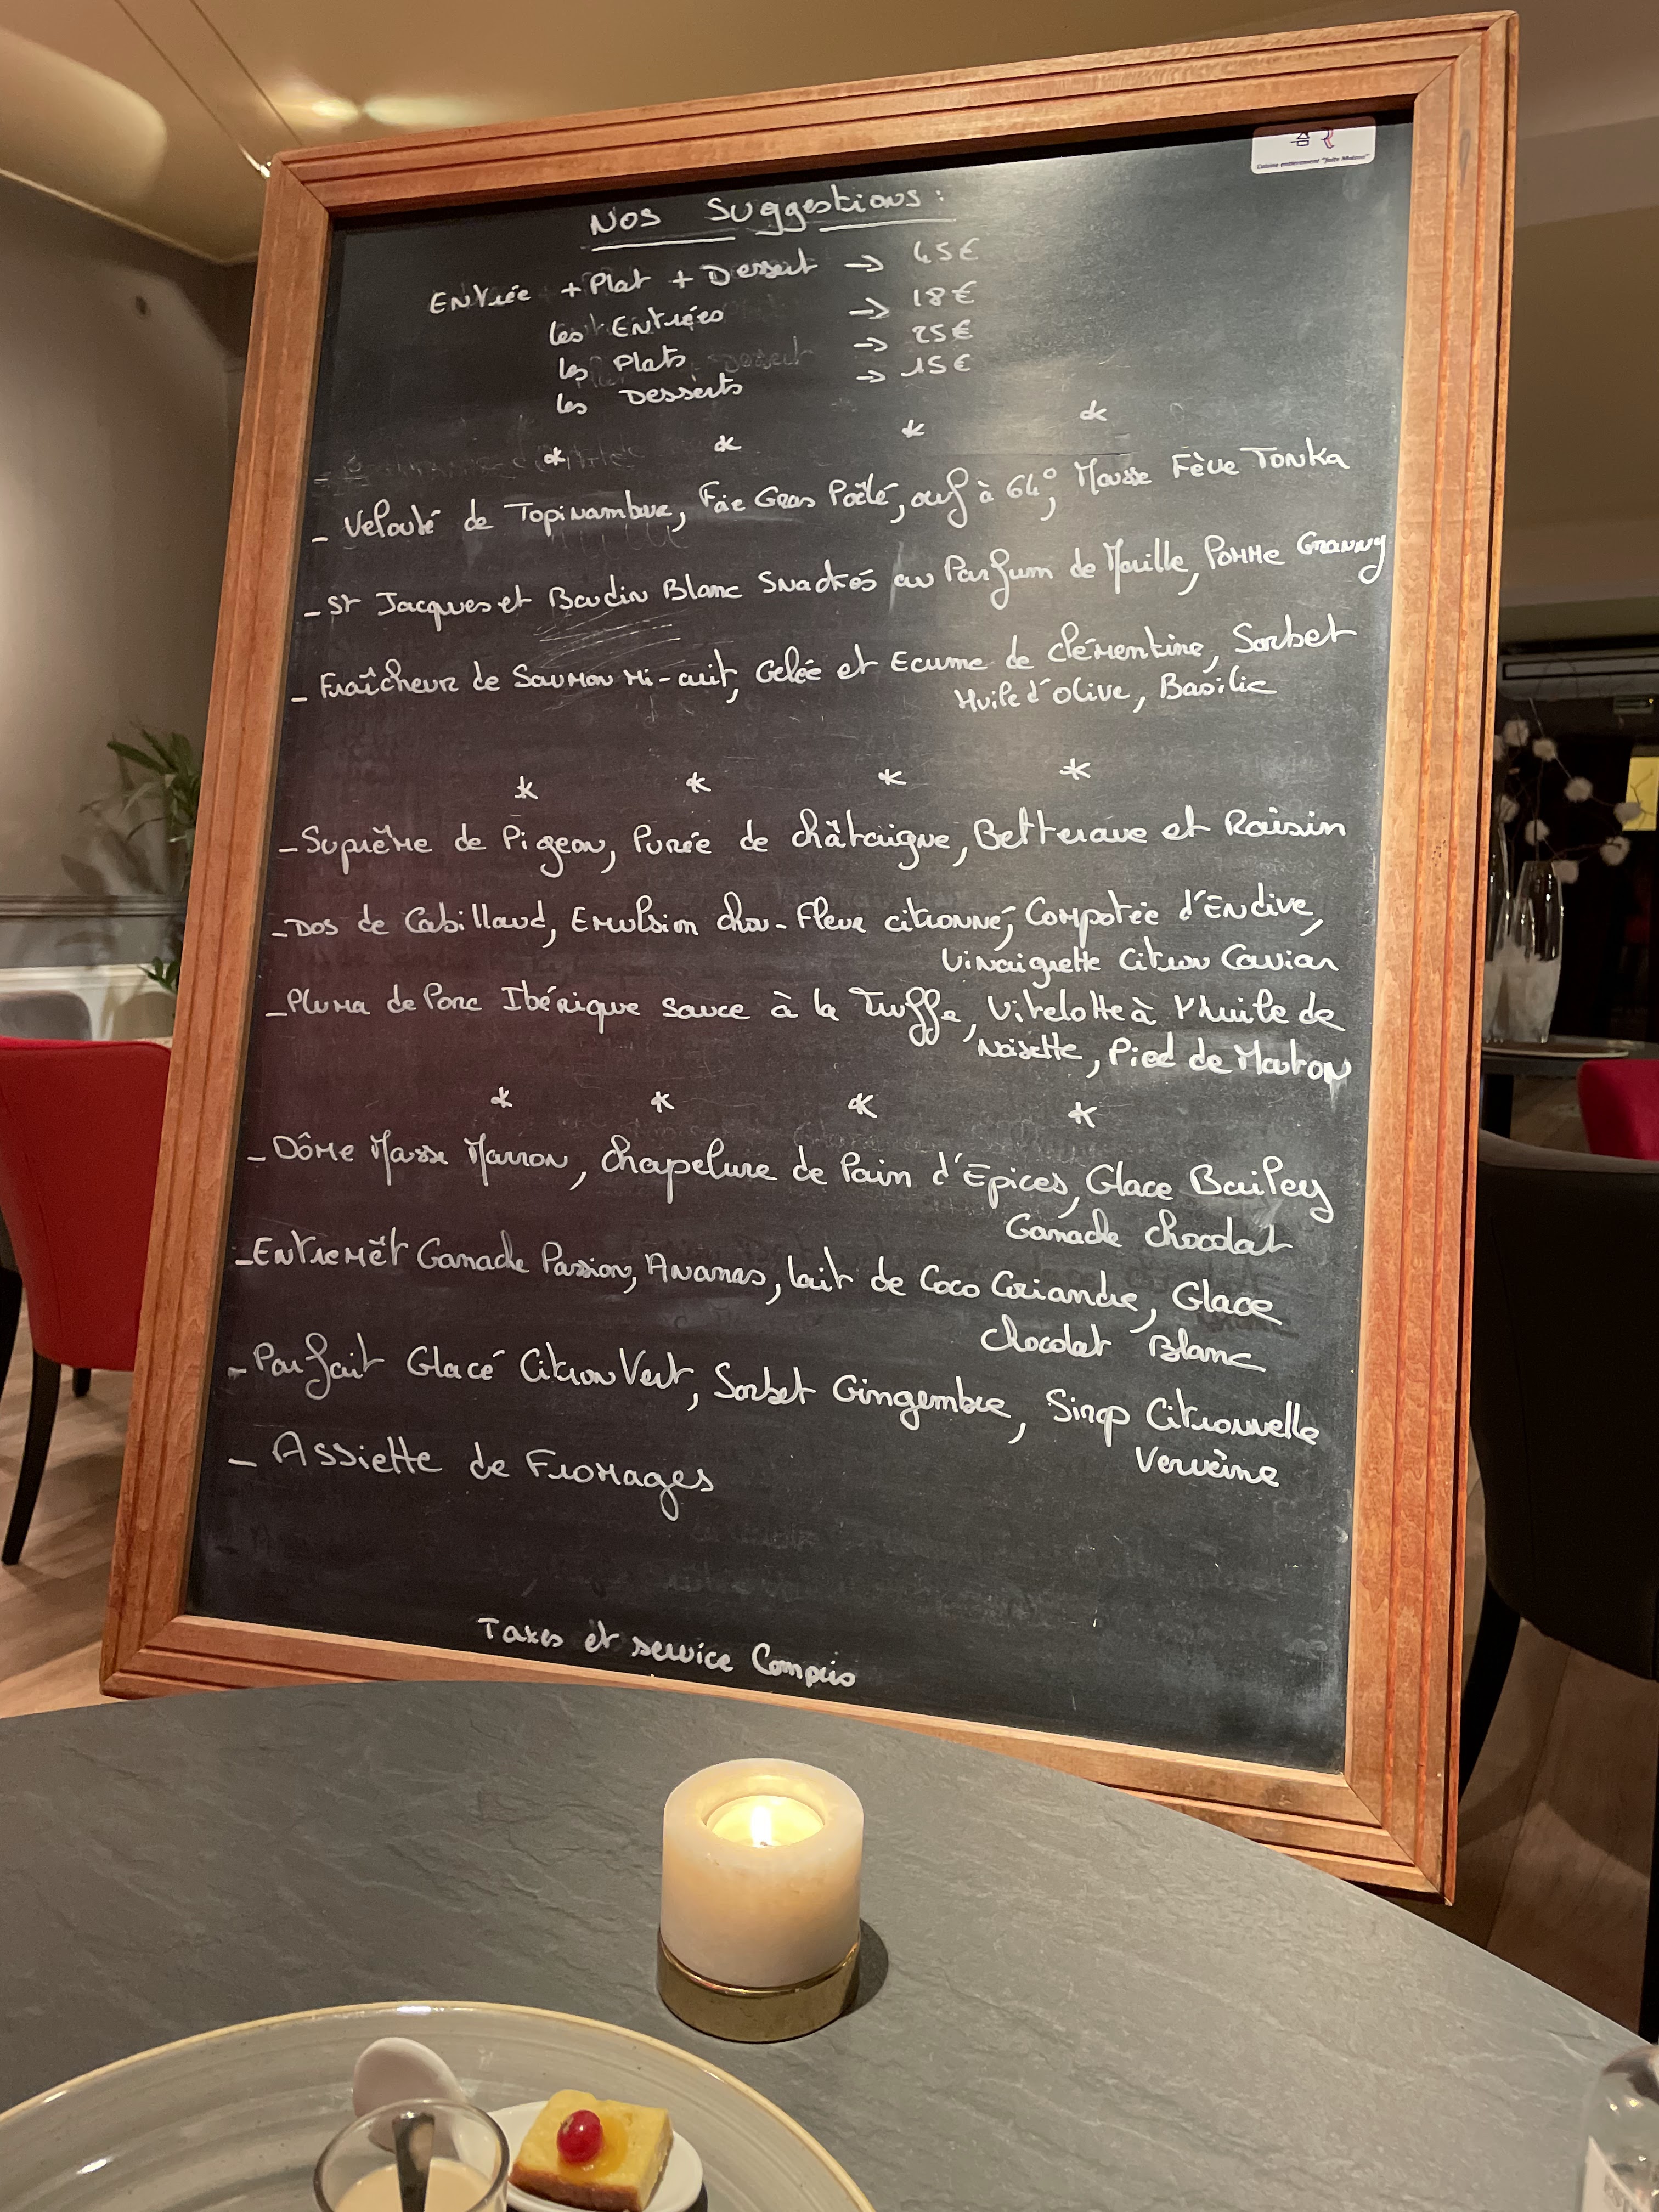 Cuisine entièrement "faite Maison"
Nos Suggestions :
Entrée + Plat + Dessert → 45€
les Entrées → 18€
les Plats → 25€
les Desserts → 15€
* * * *
- Velouté de Topinambur, Foie Gras Poêlé, œuf à 64°, Mousse Fève Tonka
- St Jacques et Boudin Blanc Snackés au Parfum de Morille, Pomme Granny
- Fraîcheur de Saumon Mi-cuit, Gelée et Ecume de Clémentine, Sorbet
Huile d'olive, Basilic
* * * *
- Suprême de Pigeon, Purée de châtaigne, Betterave et Raisin
- Dos de Cabillaud, Emulsion chou-Fleur citronné, Compotée d'Endive,
Vinaigrette Citron Caviar
- Pluma de Porc Ibérique sauce à la Truffe, Vitelotte à l'huile de
Noisette, Pied de Mouton
* * * *
- Dôme Mousse Marron, Chapelure de Pain d'Epices, Glace Bailey
Ganache Chocolat
- Entremêt Ganache Passion, Ananas, lait de Coco Coriandre, Glace
Chocolat Blanc
- Parfait Glacé Citron Vert, Sorbet Gingembre, Sirop Citronnelle
Verveine
- Assiette de Fromages
Taxes et service Compris